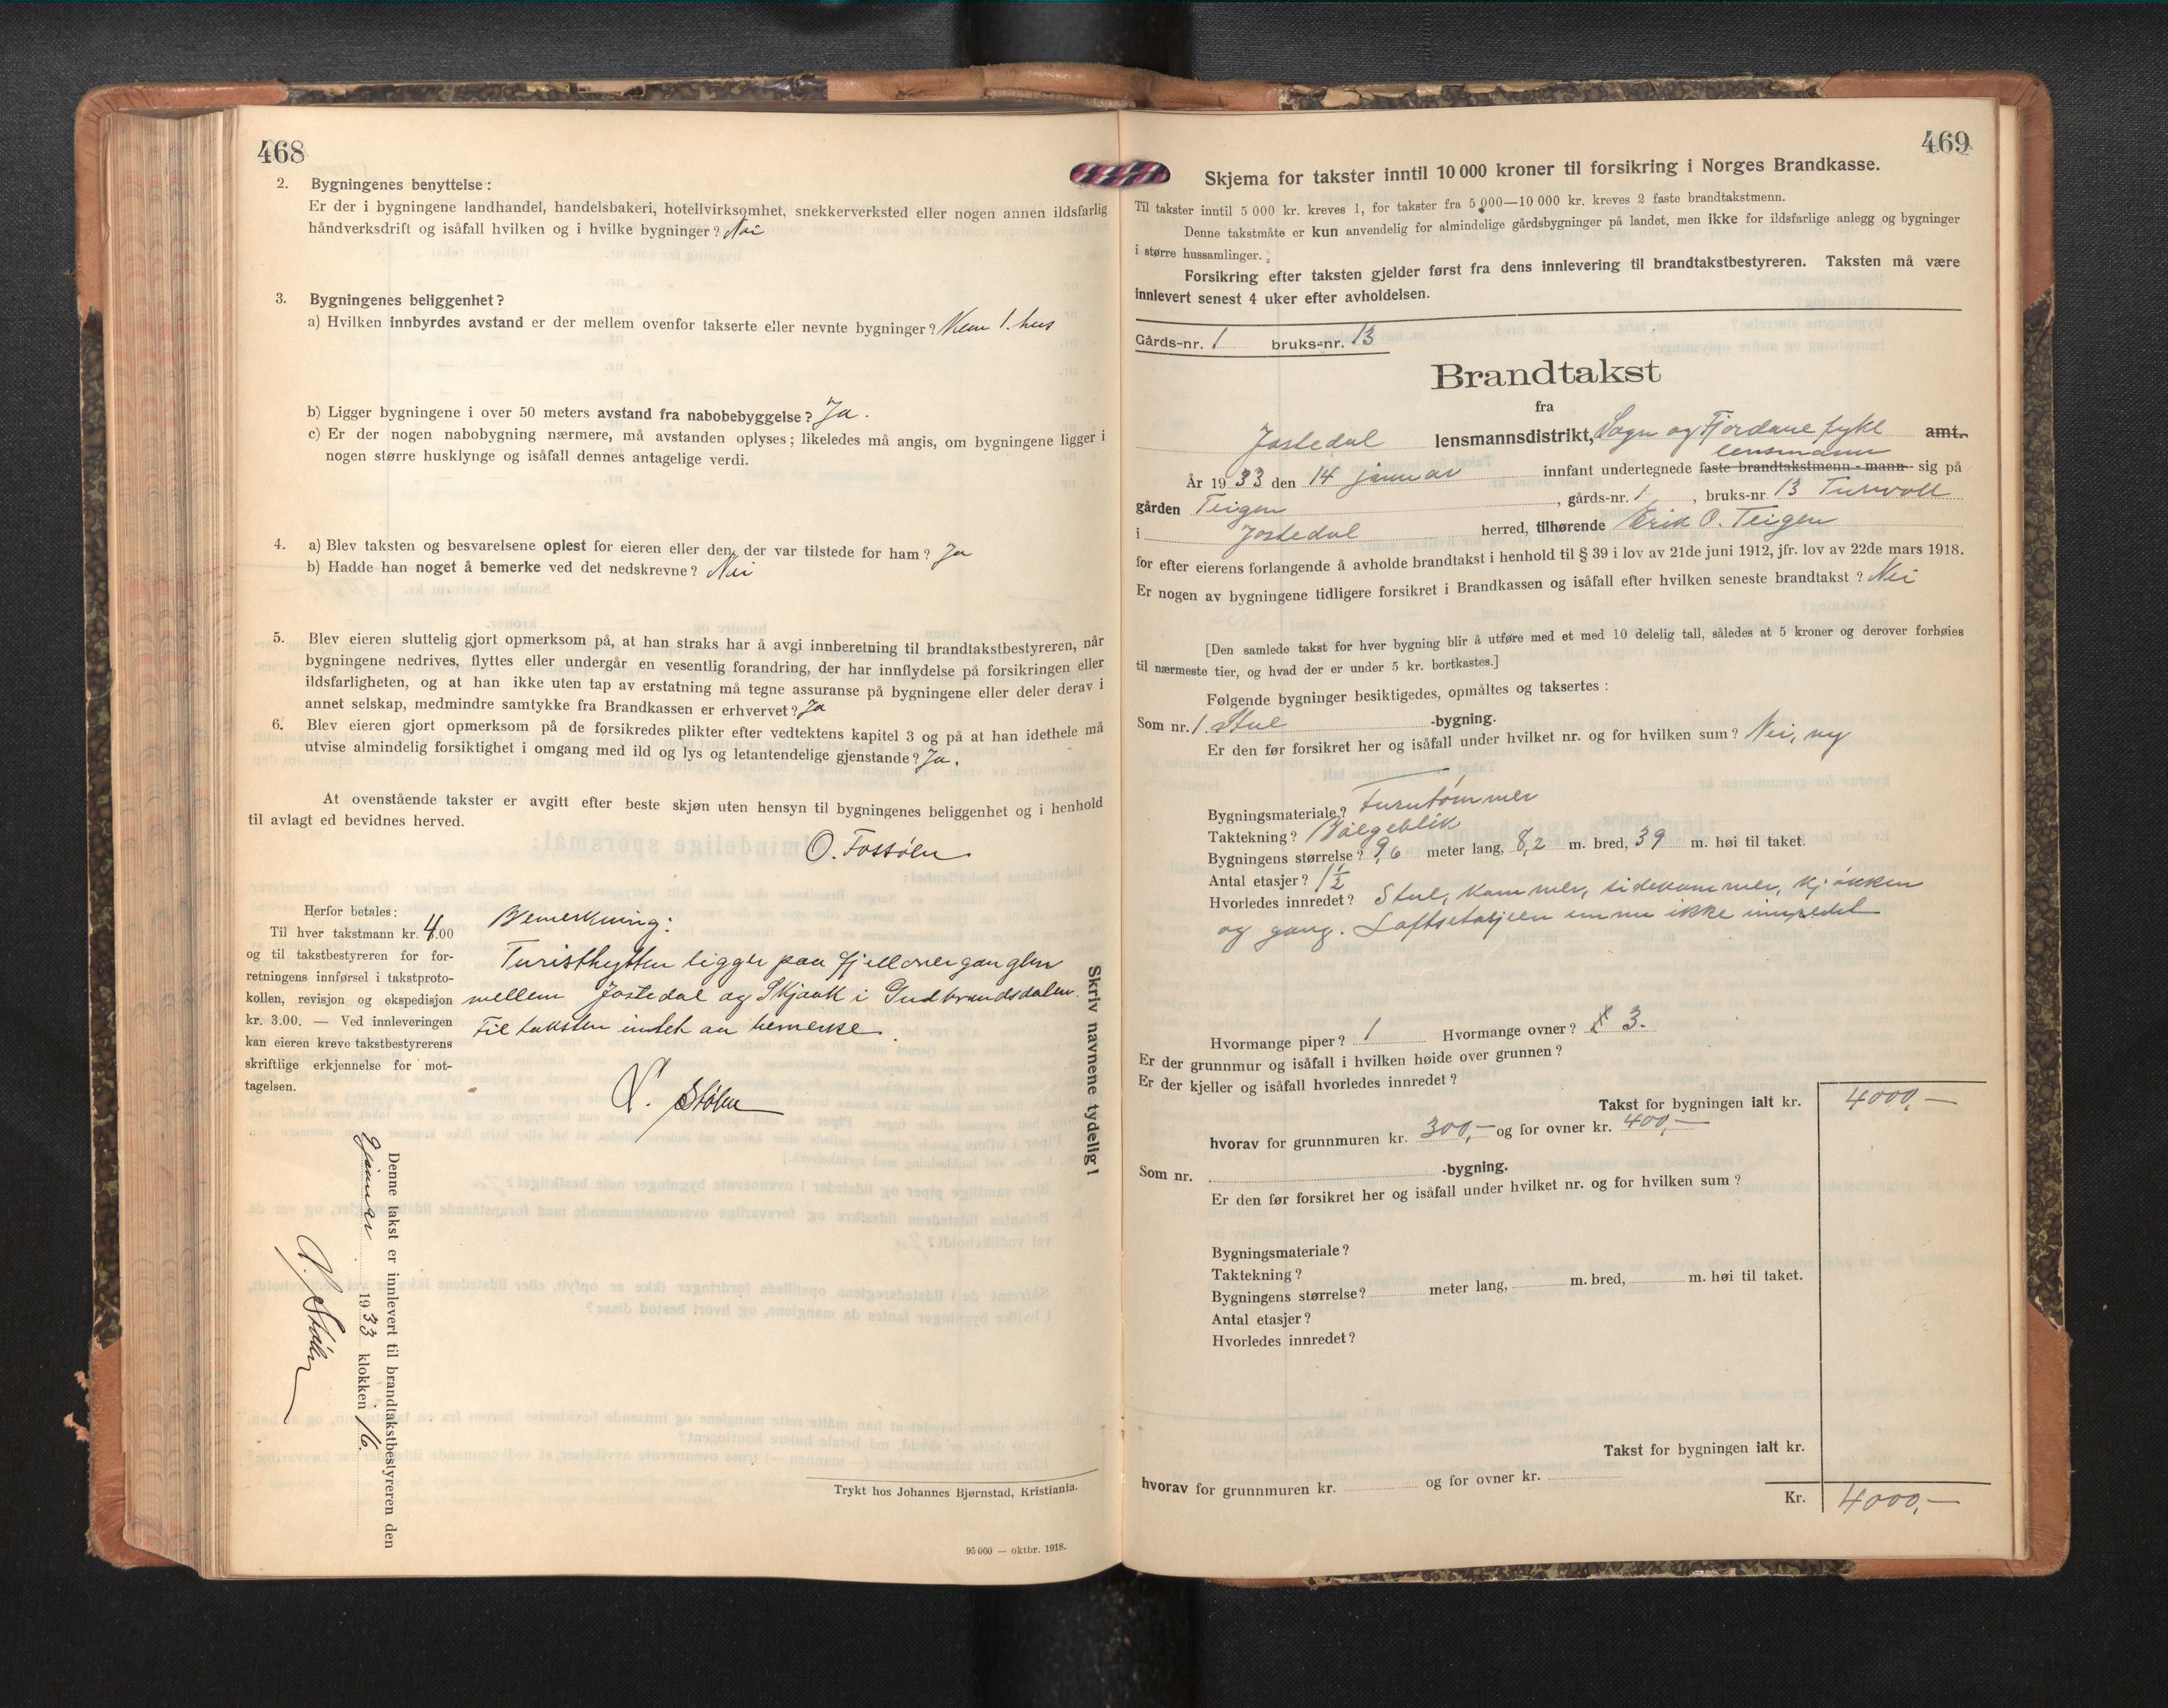 468
2. Bygningenes benyttelse:
Er der i bygningene landhandel, handelsbakeri, hotellvirksomhet, snekkerverksted eller nogen annen ildsfarlig
håndverksdrift og isåfall hvilken og i hvilke bygninger? Nei
3. Bygningenes beliggenhet?
a) Hvilken innbyrdes avstand er der mellem ovenfor takserte eller nevnte bygninger? Kun 1. hus
b) Ligger bygningene i over 50 meters avstand fra nabobebyggelse? Ja.
c) Er der nogen nabobygning nærmere, må avstanden oplyses; likeledes må angis, om bygningene ligger i
nogen større husklynge og isåfall dennes antagelige verdi.
4. a) Blev taksten og besvarelsene oplest for eieren eller den, der var tilstede for ham? Ja
b) Hadde han noget å bemerke ved det nedskrevne? Nei
5. Blev eieren sluttelig gjort opmerksom på, at han straks har å avgi innberetning til brandtakstbestyreren, når
bygningene nedrives, flyttes eller undergår en vesentlig forandring, der har innflydelse på forsikringen eller
ildsfarligheten, og at han ikke uten tap av erstatning må tegne assuranse på bygningene eller deler derav i
annet selskap, medmindre samtykke fra Brandkassen er erhvervet? Ja
6. Blev eieren gjort opmerksom på de forsikredes plikter efter vedtektens kapitel 3 og på at han idethele må
utvise almindelig forsiktighet i omgang med ild og lys og letantendelige gjenstande? Ja.
At ovenstående takster er avgitt efter beste skjøn uten hensyn til bygningenes beliggenhet og i henhold
til avlagt ed bevidnes herved.
O. Fossøen
Herfor betales:
Til hver takstmann kr. 4.00
og til takstbestyreren for for-
retningens innførsel i takstproto-
kollen, revisjon og ekspedisjon
kr. 3.00. — Ved innleveringen
kan eieren kreve takstbestyrerens
skriftlige erkjennelse for mot-
tagelsen.
Bemerkning:
Turisthytten ligger paa fjellovergangen
mellem Jostedal og Skjaak i Gudbrandsdalen.
Til taksten intet aa bemerke.
Stølen
Skriv navnene tydelig!
Denne takst er innlevert til brandtakstbestyreren den
januar 1933 klokken 16.
Stølen
Trykt hos Johannes Bjørnstad, Kristiania.
95 000 — oktbr. 1918.
469
Skjema for takster inntil 10 000 kroner til forsikring i Norges Brandkasse.
Til takster inntil 5 000 kr. kreves 1, for takster fra 5 000—10 000 kr. kreves 2 faste brandtakstmenn.
Denne takstmåte er kun anvendelig for almindelige gårdsbygninger på landet, men ikke for ildsfarlige anlegg og bygninger
i større hussamlinger.
Forsikring efter taksten gjelder først fra dens innlevering til brandtakstbestyreren. Taksten må være
innlevert senest 4 uker efter avholdelsen.
Gårds-nr. 1 bruks-nr. 13
Brandtakst
fra
Jostedal lensmannsdistrikt, Sogn og Fjordane fylke amt.
lensmann
År 1933 den 14 januar innfant undertegnede faste brandtakstmenn - mann - sig på
gården Teigen, gårds-nr. 1, bruks-nr. 13 Turvoll
i Jostedal herred, tilhørende Erik O. Teigen
for efter eierens forlangende å avholde brandtakst i henhold til § 39 i lov av 21de juni 1912, jfr. lov av 22de mars 1918.
Er nogen av bygningene tidligere forsikret i Brandkassen og isåfall efter hvilken seneste brandtakst? Nei
[Den samlede takst for hver bygning blir å utføre med et med 10 delelig tall, således at 5 kroner og derover forhøies
til nærmeste tier, og hvad der er under 5 kr. bortkastes.]
Følgende bygninger besiktigedes, opmåltes og taksertes:
Som nr. 1. Stue -bygning.
Er den før forsikret her og isåfall under hvilket nr. og for hvilken sum? Nei, ny
Bygningsmateriale? Furutømmer
Taktekning? Bølgeblik
Bygningens størrelse? 9,6 meter lang, 8,2 m. bred, 39 m. høi til taket.
Antal etasjer? 1½
Hvorledes innredet? Stue, kammer, sidekammer, kjøkken
og gang. Loftsetasjeen ennu ikke innredet
Hvormange piper? 1 Hvormange ovner? 3.
Er der grunnmur og isåfall i hvilken høide over grunnen?
Er der kjeller og isåfall hvorledes innredet?
Takst for bygningen ialt kr. 4000,—
hvorav for grunnmuren kr. 300,— og for ovner kr. 400,—
Som nr. -bygning.
Er den før forsikret her og isåfall under hvilket nr. og for hvilken sum?
Bygningsmateriale?
Taktekning?
Bygningens størrelse? meter lang, m. bred, m. høi til taket.
Antal etasjer?
Hvorledes innredet?
Takst for bygningen ialt kr.
hvorav for grunnmuren kr. og for ovner kr.
Kr. 4000,—